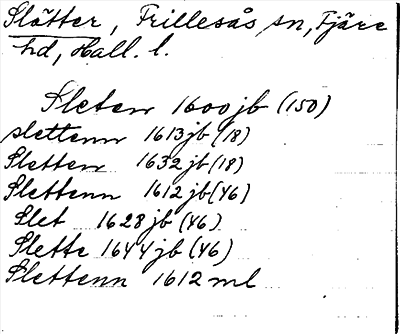 Slätter, Frillesås sn, Fjäre
hd, Hall. l.
Sleten 1600 jb (150)
slettenn 1613 jb (18)
Sletten 1632 jb (18)
Slettenn 1612 jb (46)
Slet 1628 jb (46)
Slette 1644 jb (46)
Slettenn 1612 ml